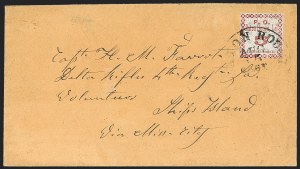 P. O.
ON ROU
Capt. H. M. Favrot
Delta Rifles 4th Regt. La.
Volunteers
Ships Island
Via Miss. City